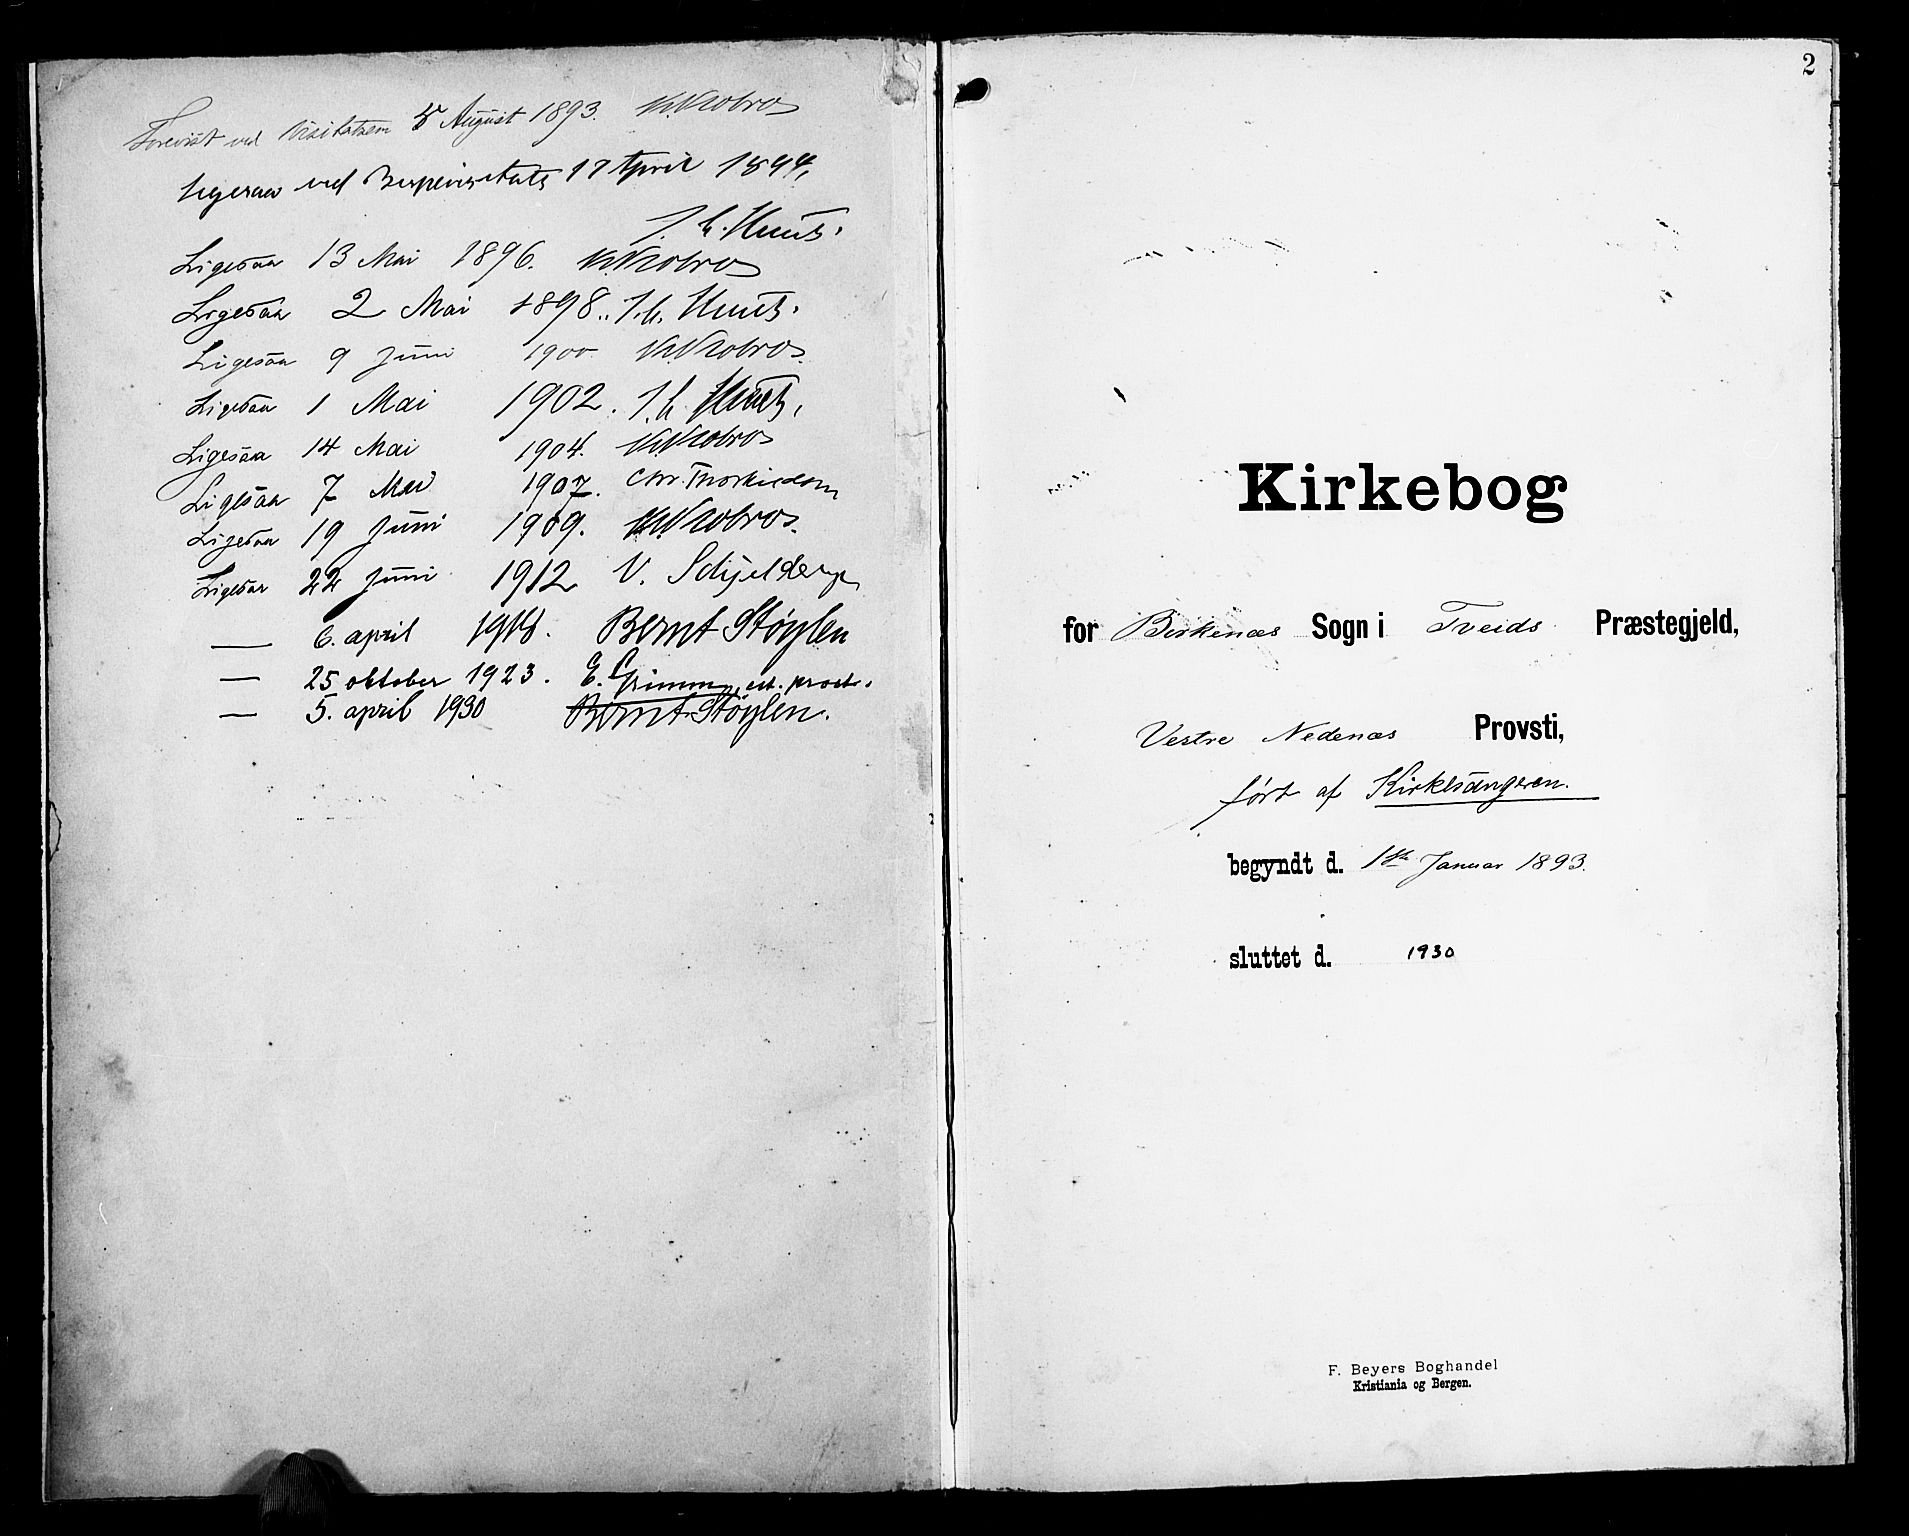 Forevist ved Visitatsen 5 August 1893. KKrobro
Ligesaa ved Bispevisitats 17 April 1894,
J. C. Heuch.
Ligesaa 13 Mai 1896.
Ligesaa 2 Mai 1898. J. C. Heuch.
Ligesaa 9 Juni 1900.
Ligesaa 1 Mai 1902. J. C. Heuch.
Ligesaa 14 Mai 1904.
Ligesaa 7 Mai 1907. Chr. Thorkildsen
Ligesaa 19 Juni 1909.
Ligesaa 22 Juni 1912 V. Schjelderup
— 6. april Bernt Støylen
— 25 oktober 1923. E. Grimm, cst. prost.
— 5. april 1930 Bernt Støylen.
2
Kirkebog
for Birkenæs Sogn i Tveids Præstegjeld,
Vestre Nedenæs Provsti,
ført af Kirkesangeren.
begyndt d. 1ste Januar 1893.
sluttet d. 1930
F. Beyers Boghandel
Kristiania og Bergen.